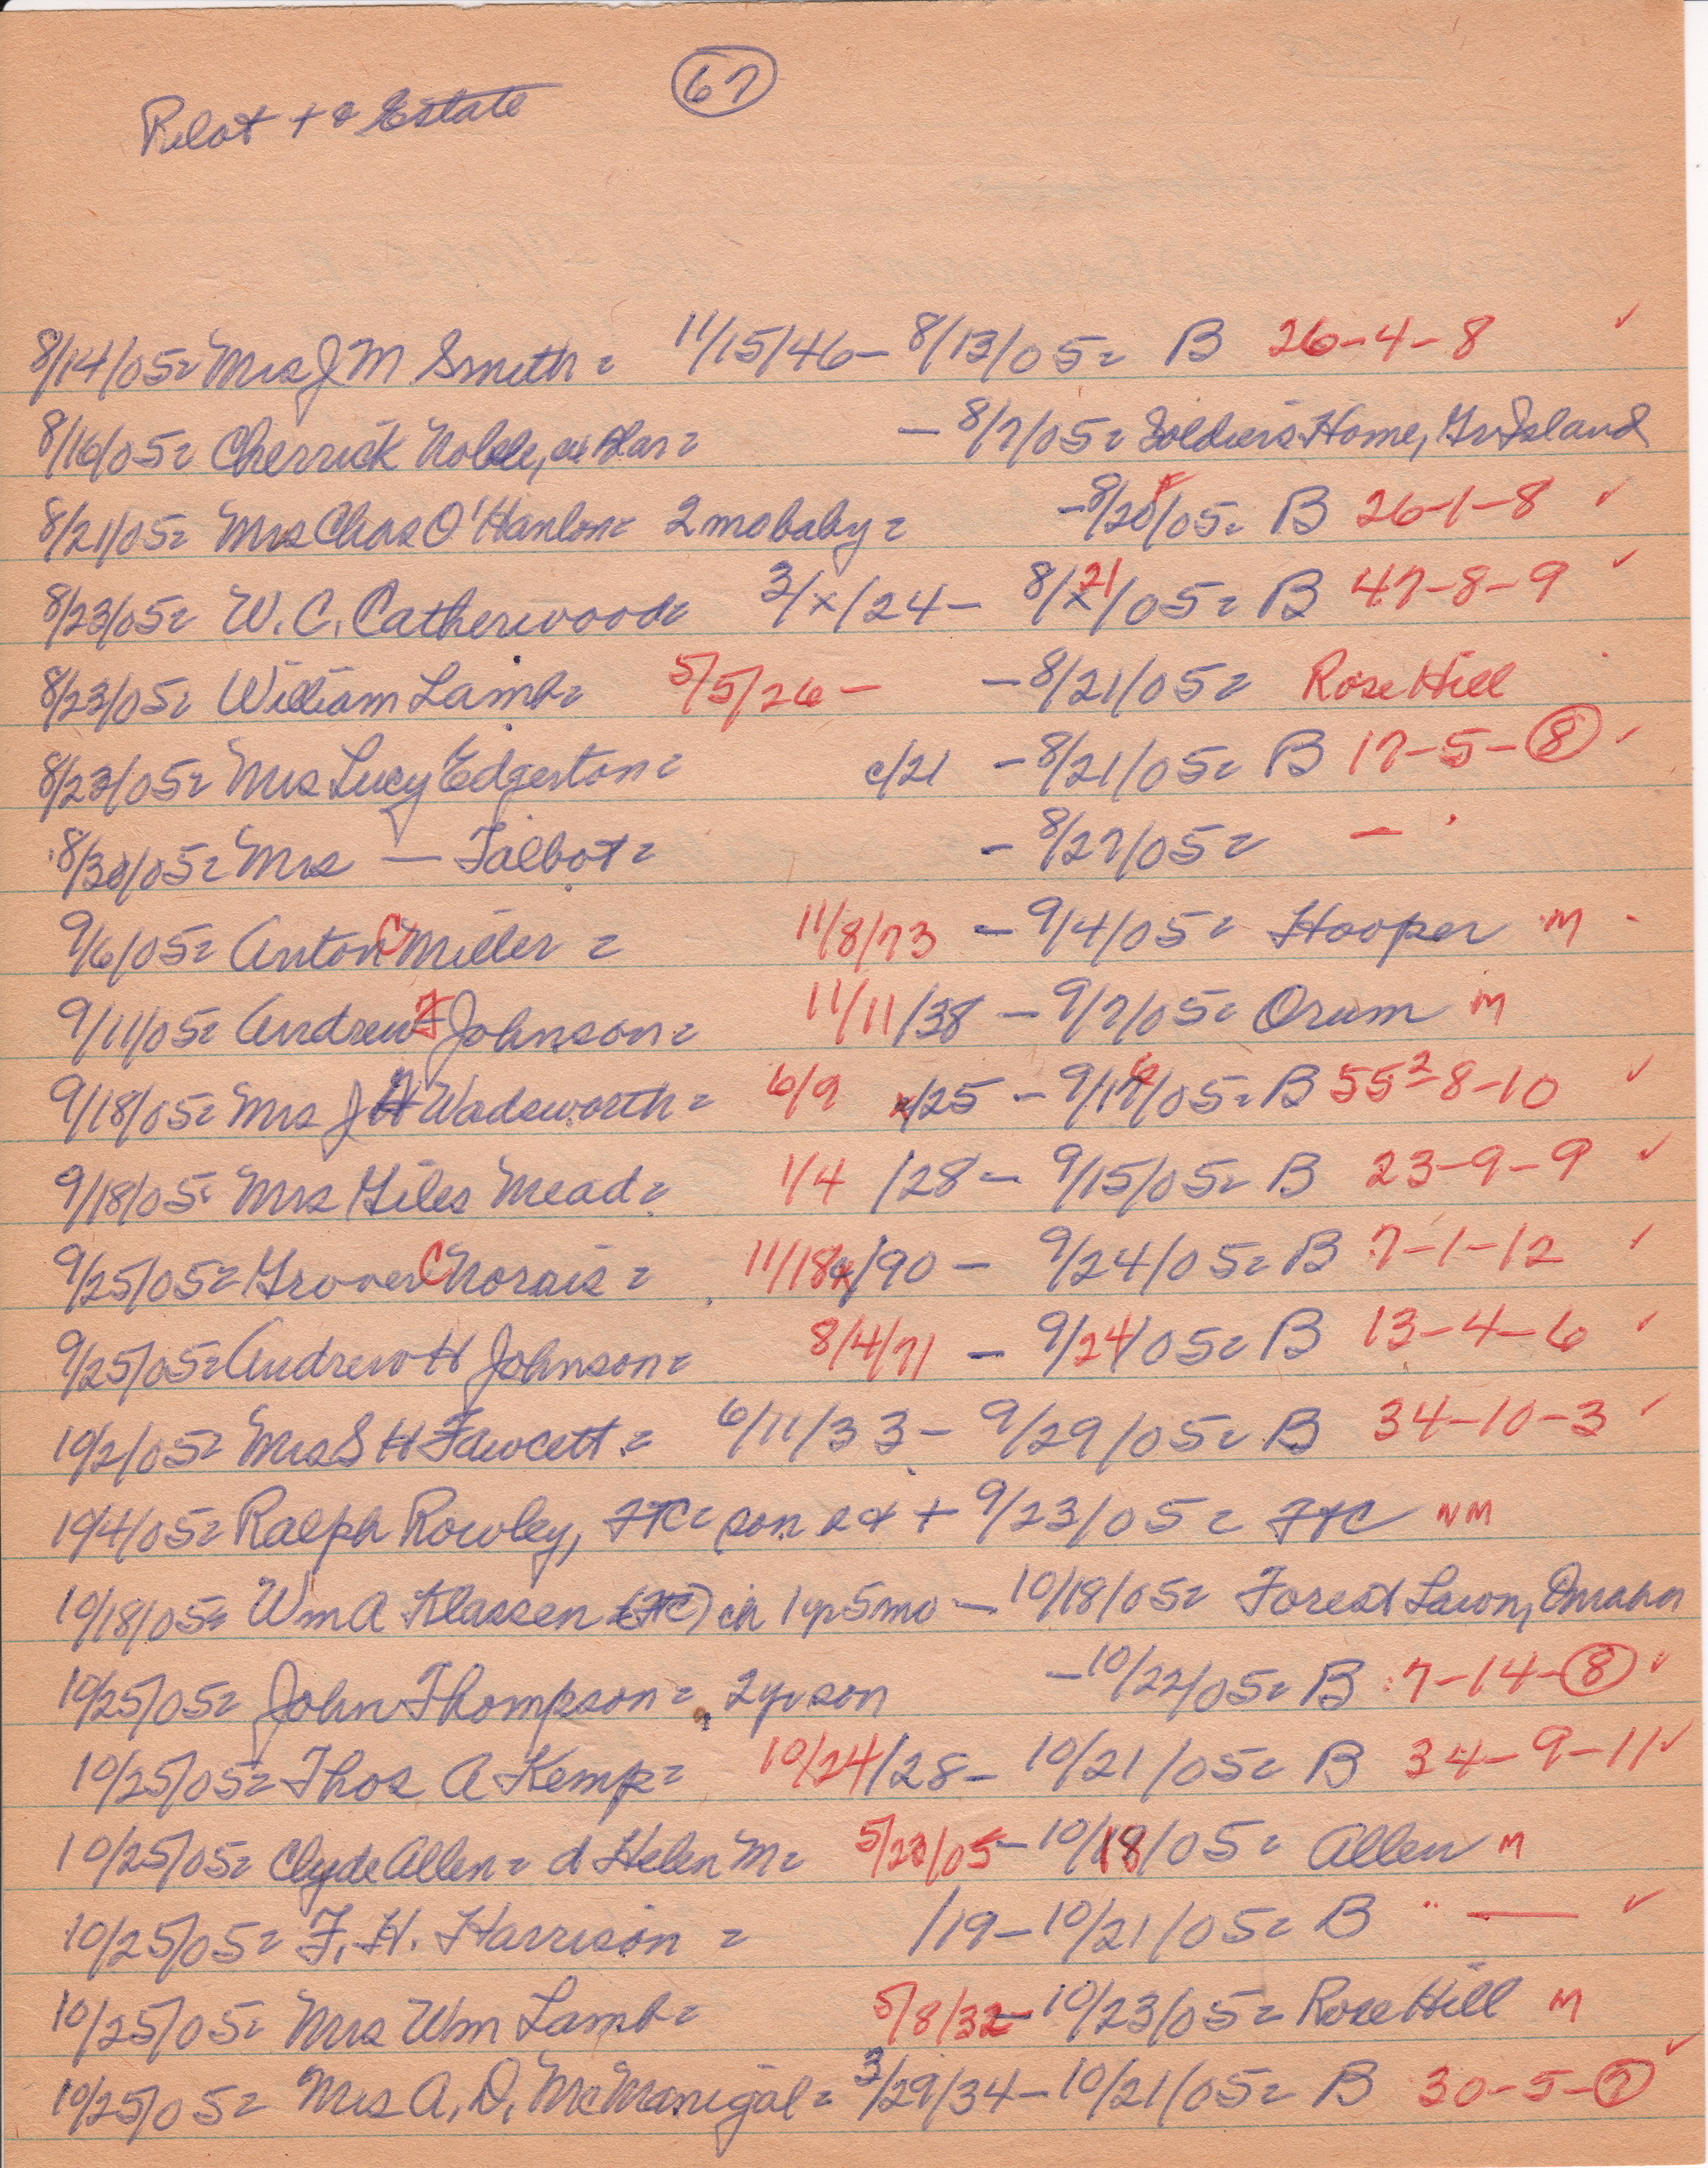 67
Pilot + & Estate
8/14/05= Mrs J M Smith = 11/15/46 - 8/13/05= B 26-4-8 ✓
8/16/05= Cherrick Noble, = - 8/7/05= Soldiers Home, Gr Island
8/21/05= Mrs Chas O'Hanlon= 2 mo baby = - 8/20/05= B 26-1-8 ✓
8/23/05= W. C. Catherwood= 3/x/24 - 8/21/05= B 47-8-9 ✓
8/23/05= William Lamb= 5/5/26 - - 8/21/05= Rose Hill
8/23/05= Mrs Lucy Edgerton= c/21 - 8/21/05= B 17-5-8 ✓
8/30/05= Mrs — Talbot= - 8/27/05= —
9/6/05= Anton C Miller = 11/8/73 - 9/4/05= Hooper M
9/11/05= Andrew F Johnson= 11/11/38 - 9/7/05= Orum M
9/18/05= Mrs J H Wadsworth= 6/9 /25 - 9/16/05= B 55²-8-10 ✓
9/18/05= Mrs Giles Mead= 1/4 /28 - 9/15/05= B 23-9-9 ✓
9/25/05= Grover C Norris = 11/18/90 - 9/24/05= B 7-1-12 ✓
9/25/05= Andrew H Johnson= 8/4/71 - 9/24/05= B 13-4-6 ✓
10/2/05= Mrs S H Fawcett = 6/11/33 - 9/29/05= B 34-10-3 ✓
10/4/05= Ralph Rowley, FTC= son + 9/23/05= FTC NM
10/18/05= Wm A Klassen (FTC) ch 1 yr 5 mo - 10/18/05= Forest Lawn, Omaha
10/25/05= John Thompson= 2 yr son - 10/22/05= B 7-14-8 ✓
10/25/05= Thos A Kemp= 10/24/28 - 10/21/05= B 34-9-11 ✓
10/25/05= Clyde Allen= d Helen M= 5/23/05 - 10/18/05= Allen M
10/25/05= F. H. Harrison = /19 - 10/21/05= B — ✓
10/25/05= Mrs Wm Lamb= 5/8/32 - 10/23/05= Rose Hill M
10/25/05= Mrs A. D. McManigal= 3/29/34 - 10/21/05= B 30-5-7 ✓